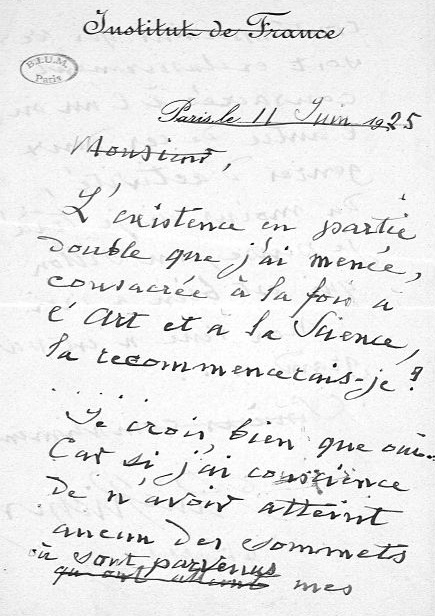 Institut de France
B.I.U.M.
Paris
Paris, le 11 Juin 1925
Monsieur,
L'existence en partie
double que j'ai menée,
consacrée à la fois à
l'Art et à la Science,
la recommencerais-je ?
.....
Je crois bien que oui.
Car si j'ai conscience
de n'avoir atteint
aucun des sommets
où sont parvenus
qui ont atteint mes